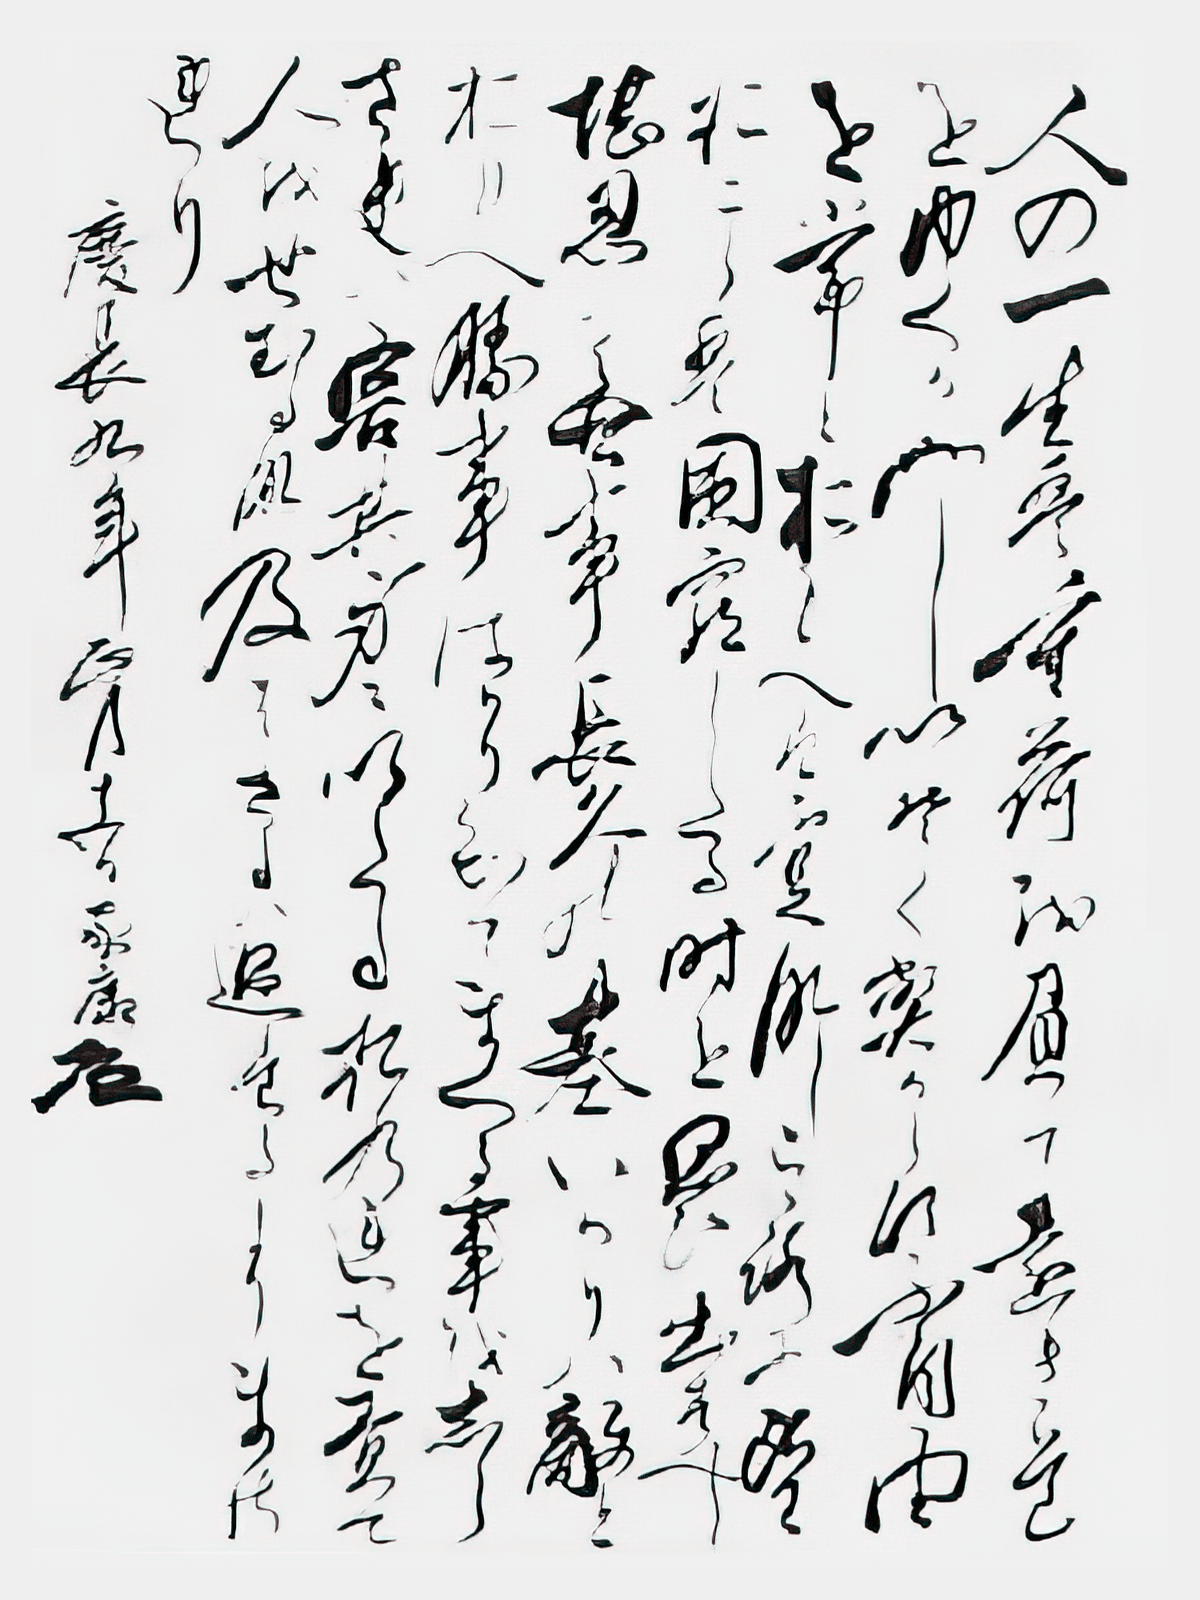 人の一生は重荷を負て遠き道
をゆくかことしいそくへからす不自由
を常とおもへは不足なしこゝろに望
おこらは困窮したる時を思ひ出すへし
堪忍は無事長久の基いかりは敵と
おもへ勝事はかり知てまくる事を志ら
され は害其身にいたるおのれを責て
人をせむるな及はさるは過たるよりまさ
れり
慶長九年正月十五日 家康